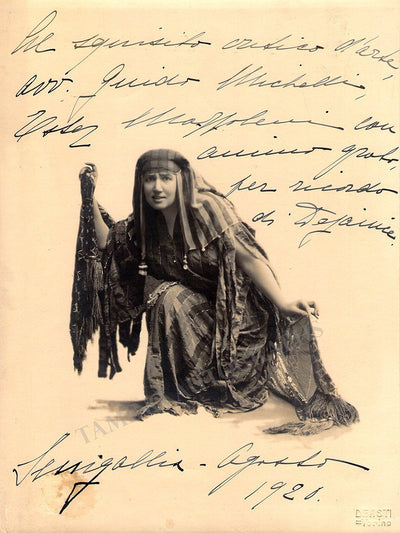 Al squisito critico d'arte,
avv. Guido Michelli,
Ester Mazzoleni con
animo grato,
per ricordo
di Dejanice.
Senigallia - Agosto
1920.
TAM